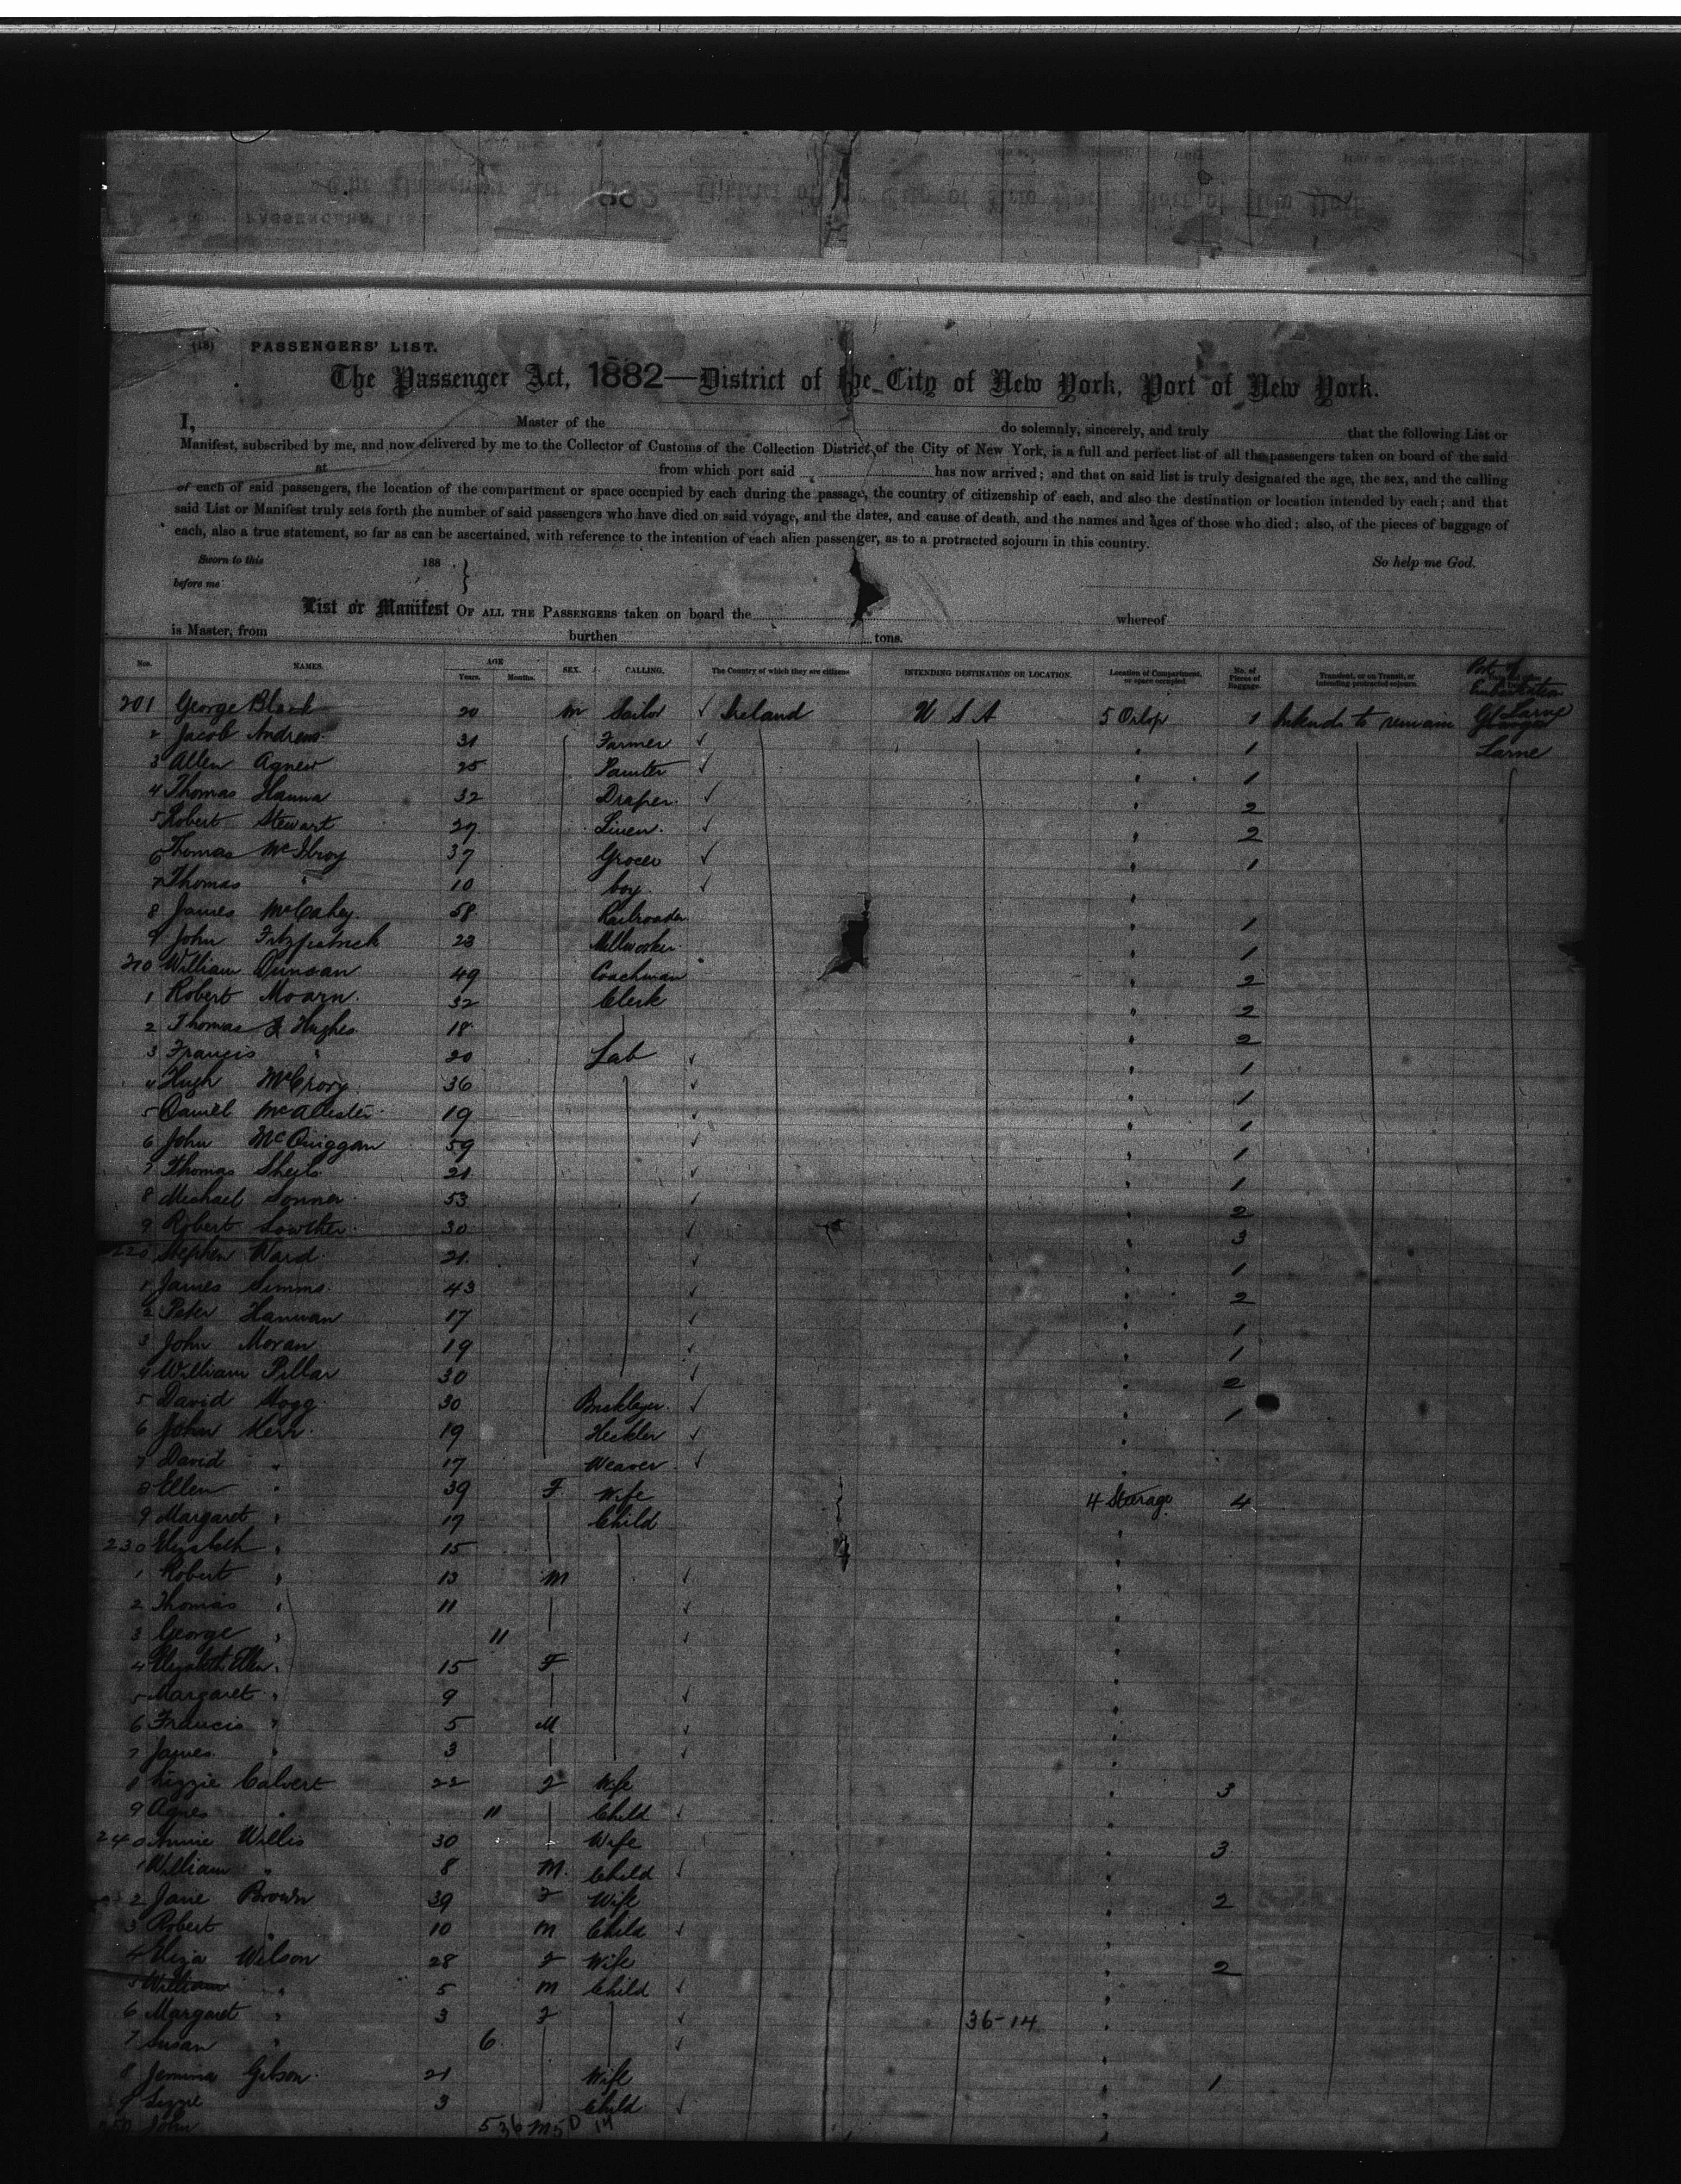 (18) PASSENGERS' LIST.
The Passenger Act, 1882—District of the City of New York, Port of New York.
I, Master of the do solemnly, sincerely, and truly that the following List or
Manifest, subscribed by me, and now delivered by me to the Collector of Customs of the Collection District of the City of New York, is a full and perfect list of all the passengers taken on board of the said
at from which port said has now arrived; and that on said list is truly designated the age, the sex, and the calling
of each of said passengers, the location of the compartment or space occupied by each during the passage, the country of citizenship of each, and also the destination or location intended by each; and that
said List or Manifest truly sets forth the number of said passengers who have died on said voyage, and the dates, and cause of death, and the names and ages of those who died; also, of the pieces of baggage of
each, also a true statement, so far as can be ascertained, with reference to the intention of each alien passenger, as to a protracted sojourn in this country.
Sworn to this 188 So help me God.
before me
List or Manifest OF ALL THE PASSENGERS taken on board the whereof
is Master, from burthen tons.
Nos. NAMES. AGE Years. Months. SEX. CALLING. The Country of which they are citizens INTENDING DESTINATION OR LOCATION. Location of Compartment, or space occupied No. of Pieces of Baggage. Transient, or on Transit, or intending protracted sojourn. Port of Embarkation
201 George Black 20 M Sailor Ireland U S A 5 Orlop 1 Intends to remain Glasgow Larne
2 Jacob Andrews 31 Farmer 1 Larne
3 Allen Agnew 25 Painter 1
4 Thomas Hanna 32 Draper 2
5 Robert Stewart 29 Linen 2
6 Thomas McIlroy 37 Grocer 1
7 Thomas " 10 boy
8 James McCahey 58 Railroader 1
9 John Fitzpatrick 23 Millworker 1
210 William Duncan 49 Coachman 2
1 Robert Moarn 32 Clerk 2
2 Thomas Hughes 18 2
3 Francis " 20 Lab 1
4 Hugh McCrory 36 1
5 Daniel McAllister 19 1
6 John McQuiggan 59 1
7 Thomas Sheils 21 1
8 Michael Sonner 53 2
9 Robert Lowther 30 3
220 Stephen Ward 21 1
1 James Simms 43 2
2 Peter Hanvan 17 1
3 John Moran 19 1
4 William Pillar 30 2
5 David Hogg 30 Bricklayer 1
6 John Kerr 19 Heckler
7 David " 17 Weaver
8 Ellen " 39 F Wife 4 Steerage 4
9 Margaret " 17 Child
230 Elizabeth " 15
1 Robert " 13 M
2 Thomas " 11
3 George " 11
4 Elizabeth Ellen " 15 F
5 Margaret " 9
6 Francis " 5 M
7 James " 3
8 Lizzie Calvert 22 F Wife 3
9 Agnes " 11 Child
240 Annie Willis 30 Wife 3
1 William " 8 M. Child
2 Jane Brown 39 F Wife 2
3 Robert " 10 M Child
4 Eliza Wilson 28 F Wife 2
5 William " 5 M Child
6 Margaret " 3 F 36-14
7 Susan " 6
8 Jemima Gibson 21 Wife 1
9 Lizzie 3 Child
250 John 5 M